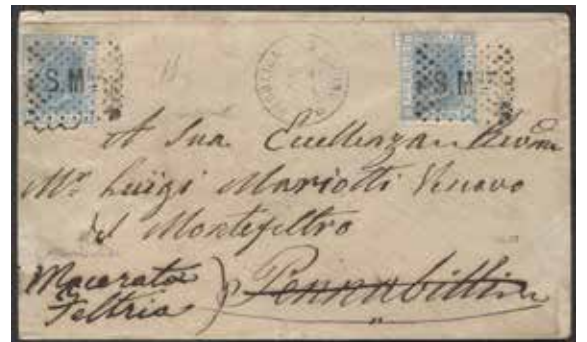 S.M S.M
A Sua Eccellenza Revma
Mr Luigi Mariotti Vescovo
del Montefeltro
Macerata Feltria) Pennabilli